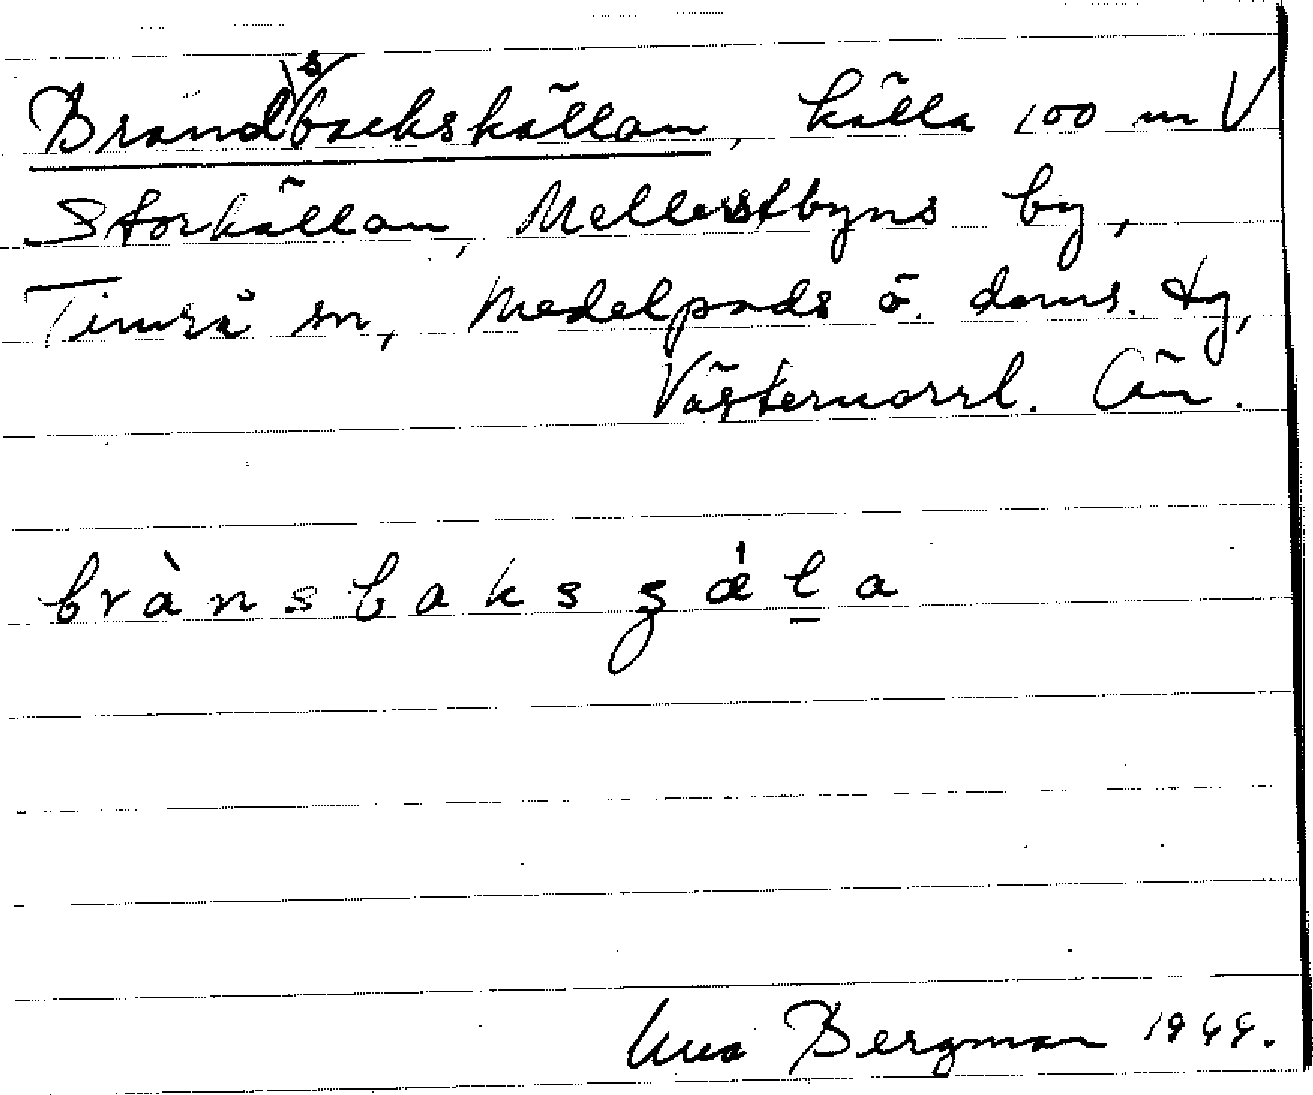 Brandsbackskällan, källa 100 m V
Storkällan, Mellerstbyns by,
Timrå sn, Medelpads ö. doms. tg,
Västernorrl. län.
brànsbaksʒǽla
Bergman 1944.